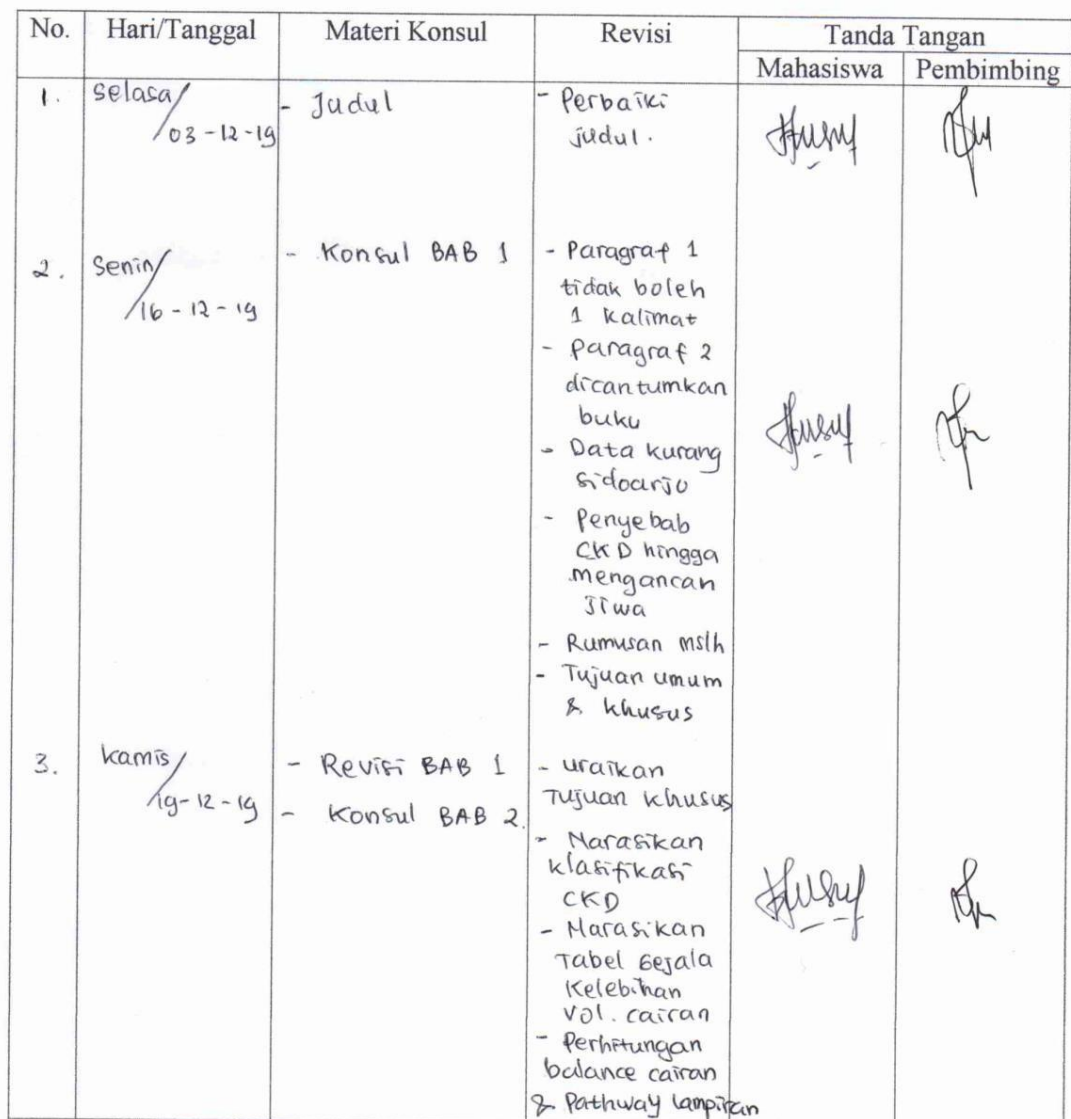 No. Hari/Tanggal Materi Konsul Revisi Tanda Tangan
Mahasiswa Pembimbing
1. Selasa/ - Judul - Perbaiki
/03-12-19 judul.
2. Senin/ - Konsul BAB 1 - Paragraf 1
/16-12-19 tidak boleh
1 kalimat
- Paragraf 2
dicantumkan
buku
- Data kurang
sidoarjo
- Penyebab
CKD hingga
mengancan
Jiwa
- Rumusan mslh
- Tujuan umum
& khusus
3. kamis/ - Revisi BAB 1 - uraikan
/19-12-19 - Konsul BAB 2. Tujuan khusus
- Narasikan
klasifikasi
CKD
- Narasikan
Tabel Gejala
Kelebihan
Vol. cairan
- Perhitungan
balance cairan
& Pathway lampiran